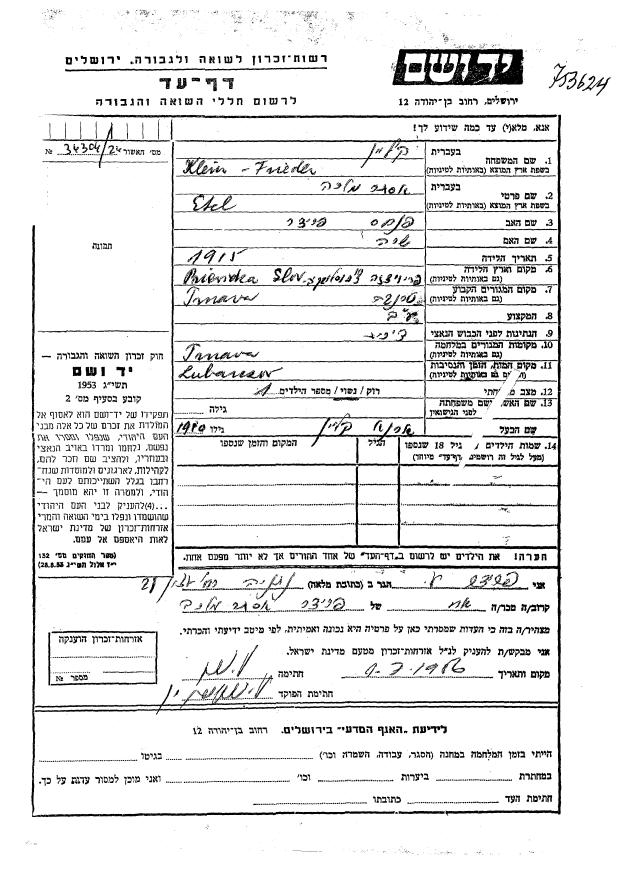 רשות-זכרון לשואה ולגבורה, ירושלים
דף-עד
לרשום חללי השואה והגבורה
יד ושם
ירושלים, רחוב בן-יהודה 12
753624
מס' האשור 34304/24 №
תמונה
חוק זכרון השואה והגבורה —
יד ושם
תשי"ג 1953
קובע בסעיף מס' 2
תפקידו של יד-ושם הוא לאסוף אל
המולדת את זכרם של כל אלה מבני
העם היהודי, שנפלו ומסרו את
נפשם, נלחמו ומרדו באויב הנאצי
ובעוזריו, ולהציב שם וזכר להם,
לקהילות, לארגונים ולמוסדות שנח־
רבו בגלל השתייכותם לעם היהו־
די, ולמטרה זו יהא מוסמך —
...(4)להעניק לבני העם היהודי
שהושמדו ונפלו בימי השואה והמרי
אזרחות-זכרון של מדינת ישראל
לאות היאספם אל עמם.
(ספר החוקים מס' 132
י"ז אלול תשי"ג 28.8.53)
אנא, מלא(י) עד כמה שידוע לך!
1. שם המשפחה
בעברית קליין
בשפת ארץ המוצא (באותיות לטיניות) Klein - Frieder
2. שם פרטי
בעברית אסתר מלכה
בשפת ארץ המוצא (באותיות לטיניות) Etel
3. שם האב פנחס פרידר
4. שם האם שרה
5. תאריך הלידה 1915
6. מקום וארץ הלידה
(גם באותיות לטיניות) Prievidza Slov.
7. מקום המגורים הקבוע
(גם באותיות לטיניות) Trnava טרנבה
8. המקצוע עק"ב
9. הנתינות לפני הכבוש הנאצי
10. מקומות המגורים במלחמה
(גם באותיות לטיניות) Trnava
11. מקום המות, הזמן והנסיבות
(המקום גם באותיות לטיניות)
12. מצב משפחתי רוק / נשוי / מספר הילדים 1
13. שם האשה ושם משפחתה
לפני הנישואין גילה
שם הבעל קליין גילו
14. שמות הילדים / עד גיל 18 שנספו
(מעל לגיל זה רושמים בדף-עד מיוחד)
הגיל
המקום והזמן שנספו
הערה! את הילדים יש לרשום ב"דף-העד" של אחד ההורים אך לא יותר מפעם אחת.
אני הגר ב (כתובת מלאה) נתניה
קרוב/ה מכר/ה אח של פרידר אסתר מלכה
מצהיר/ה בזה כי העדות שמסרתי כאן על פרטיה היא נכונה ואמיתית, לפי מיטב ידיעתי והכרתי.
אני מבקש/ת להעניק לנ"ל אזרחות-זכרון מטעם מדינת ישראל.
מקום ותאריך 1956 חתימה
חתימת הפוקד
אזרחות-זכרון הוענקה
מספר №
לידיעת "האגף המדעי" בירושלים, רחוב בן-יהודה 12
הייתי בזמן המלחמה במחנה (הסגר, עבודה, השמדה וכו') בגיטו
במחתרת ביערות וכו' ואני מוכן למסור עדות על כך.
חתימת העד כתובתו